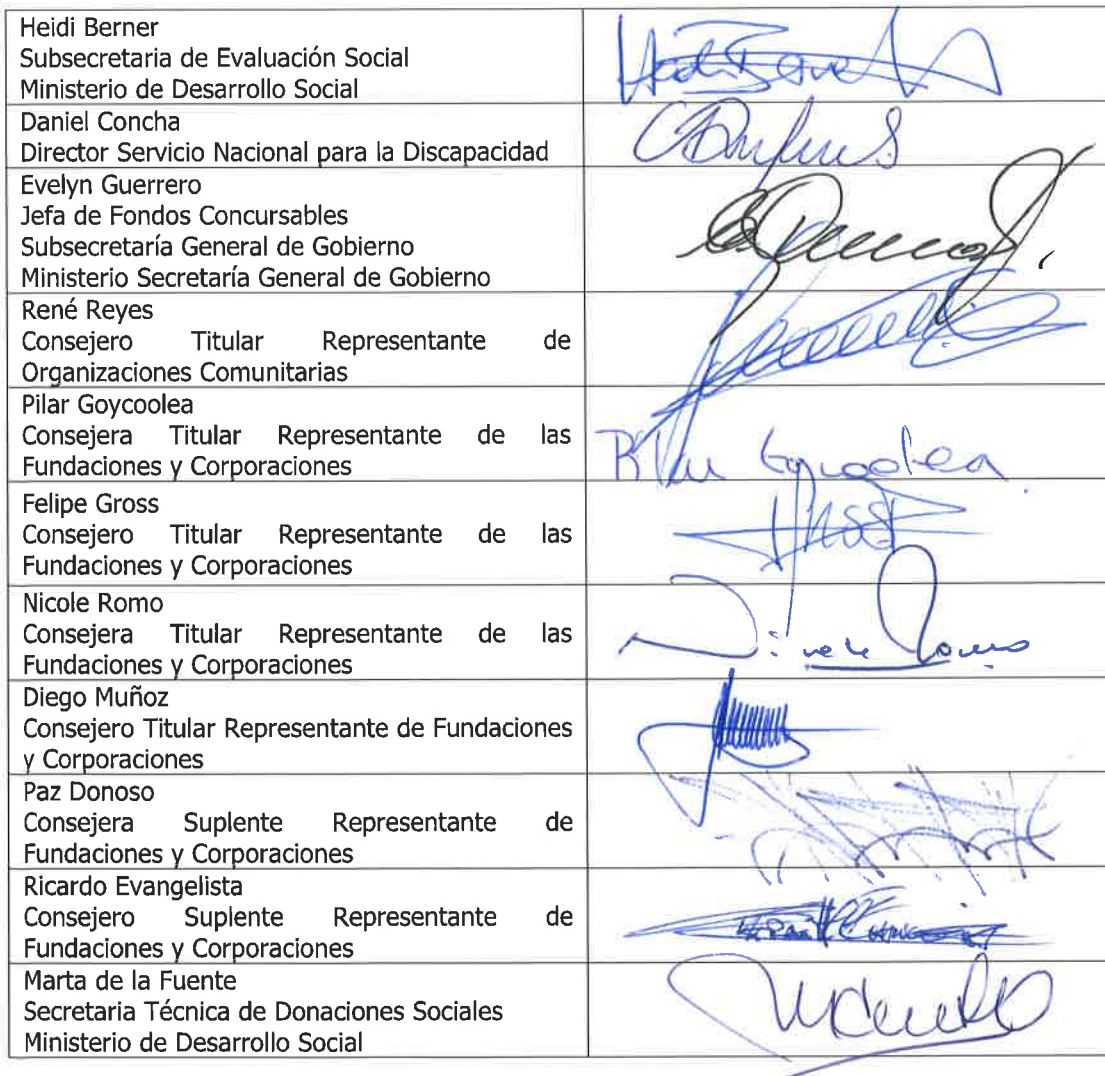 Heidi Berner
Subsecretaria de Evaluación Social
Ministerio de Desarrollo Social
Daniel Concha
Director Servicio Nacional para la Discapacidad
Evelyn Guerrero
Jefa de Fondos Concursables
Subsecretaría General de Gobierno
Ministerio Secretaría General de Gobierno
René Reyes
Consejero Titular Representante de
Organizaciones Comunitarias
Pilar Goycoolea
Consejera Titular Representante de las
Fundaciones y Corporaciones
Felipe Gross
Consejero Titular Representante de las
Fundaciones y Corporaciones
Nicole Romo
Consejera Titular Representante de las
Fundaciones y Corporaciones
Diego Muñoz
Consejero Titular Representante de Fundaciones
y Corporaciones
Paz Donoso
Consejera Suplente Representante de
Fundaciones y Corporaciones
Ricardo Evangelista
Consejero Suplente Representante de
Fundaciones y Corporaciones
Marta de la Fuente
Secretaria Técnica de Donaciones Sociales
Ministerio de Desarrollo Social